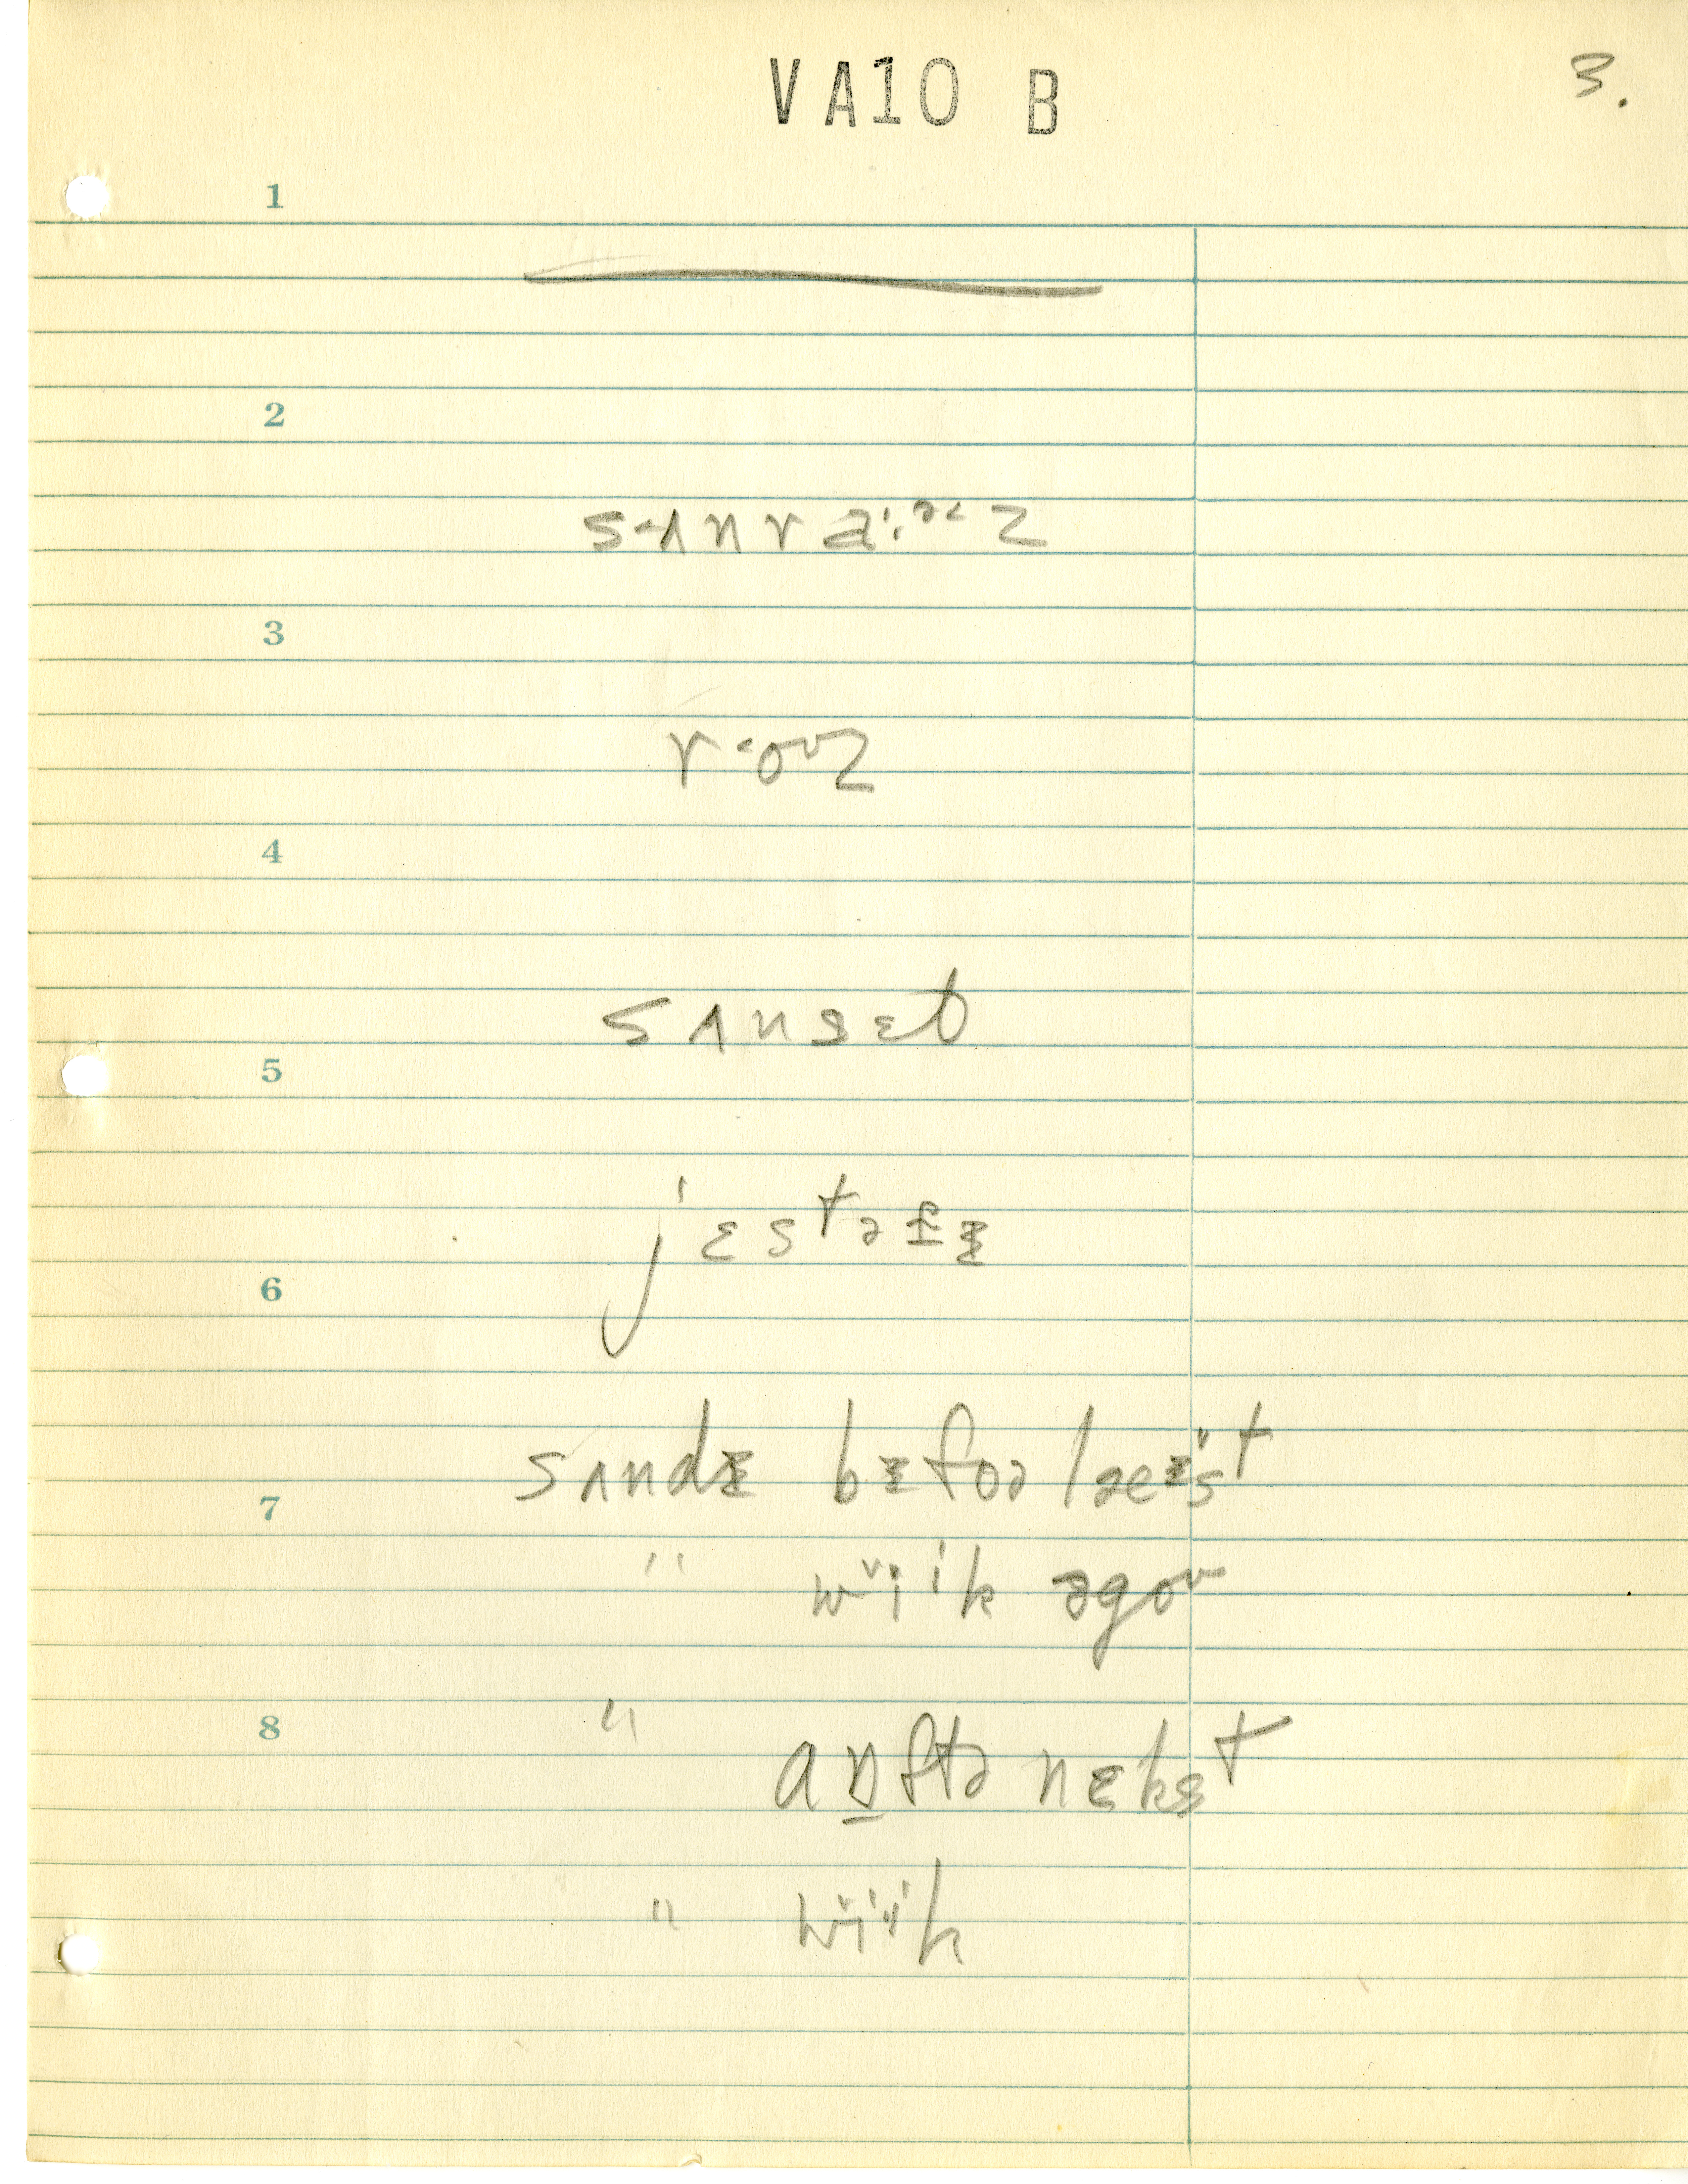 VA10 B
3.
1
2
sʌnraɪəz
3
roʊz
4
sʌnset
5
jɛstɚdɪ
6
sʌndɪ bɪfoə laest
7
" wiik əgoʊ
8
" aftə nɛkst
" wiik